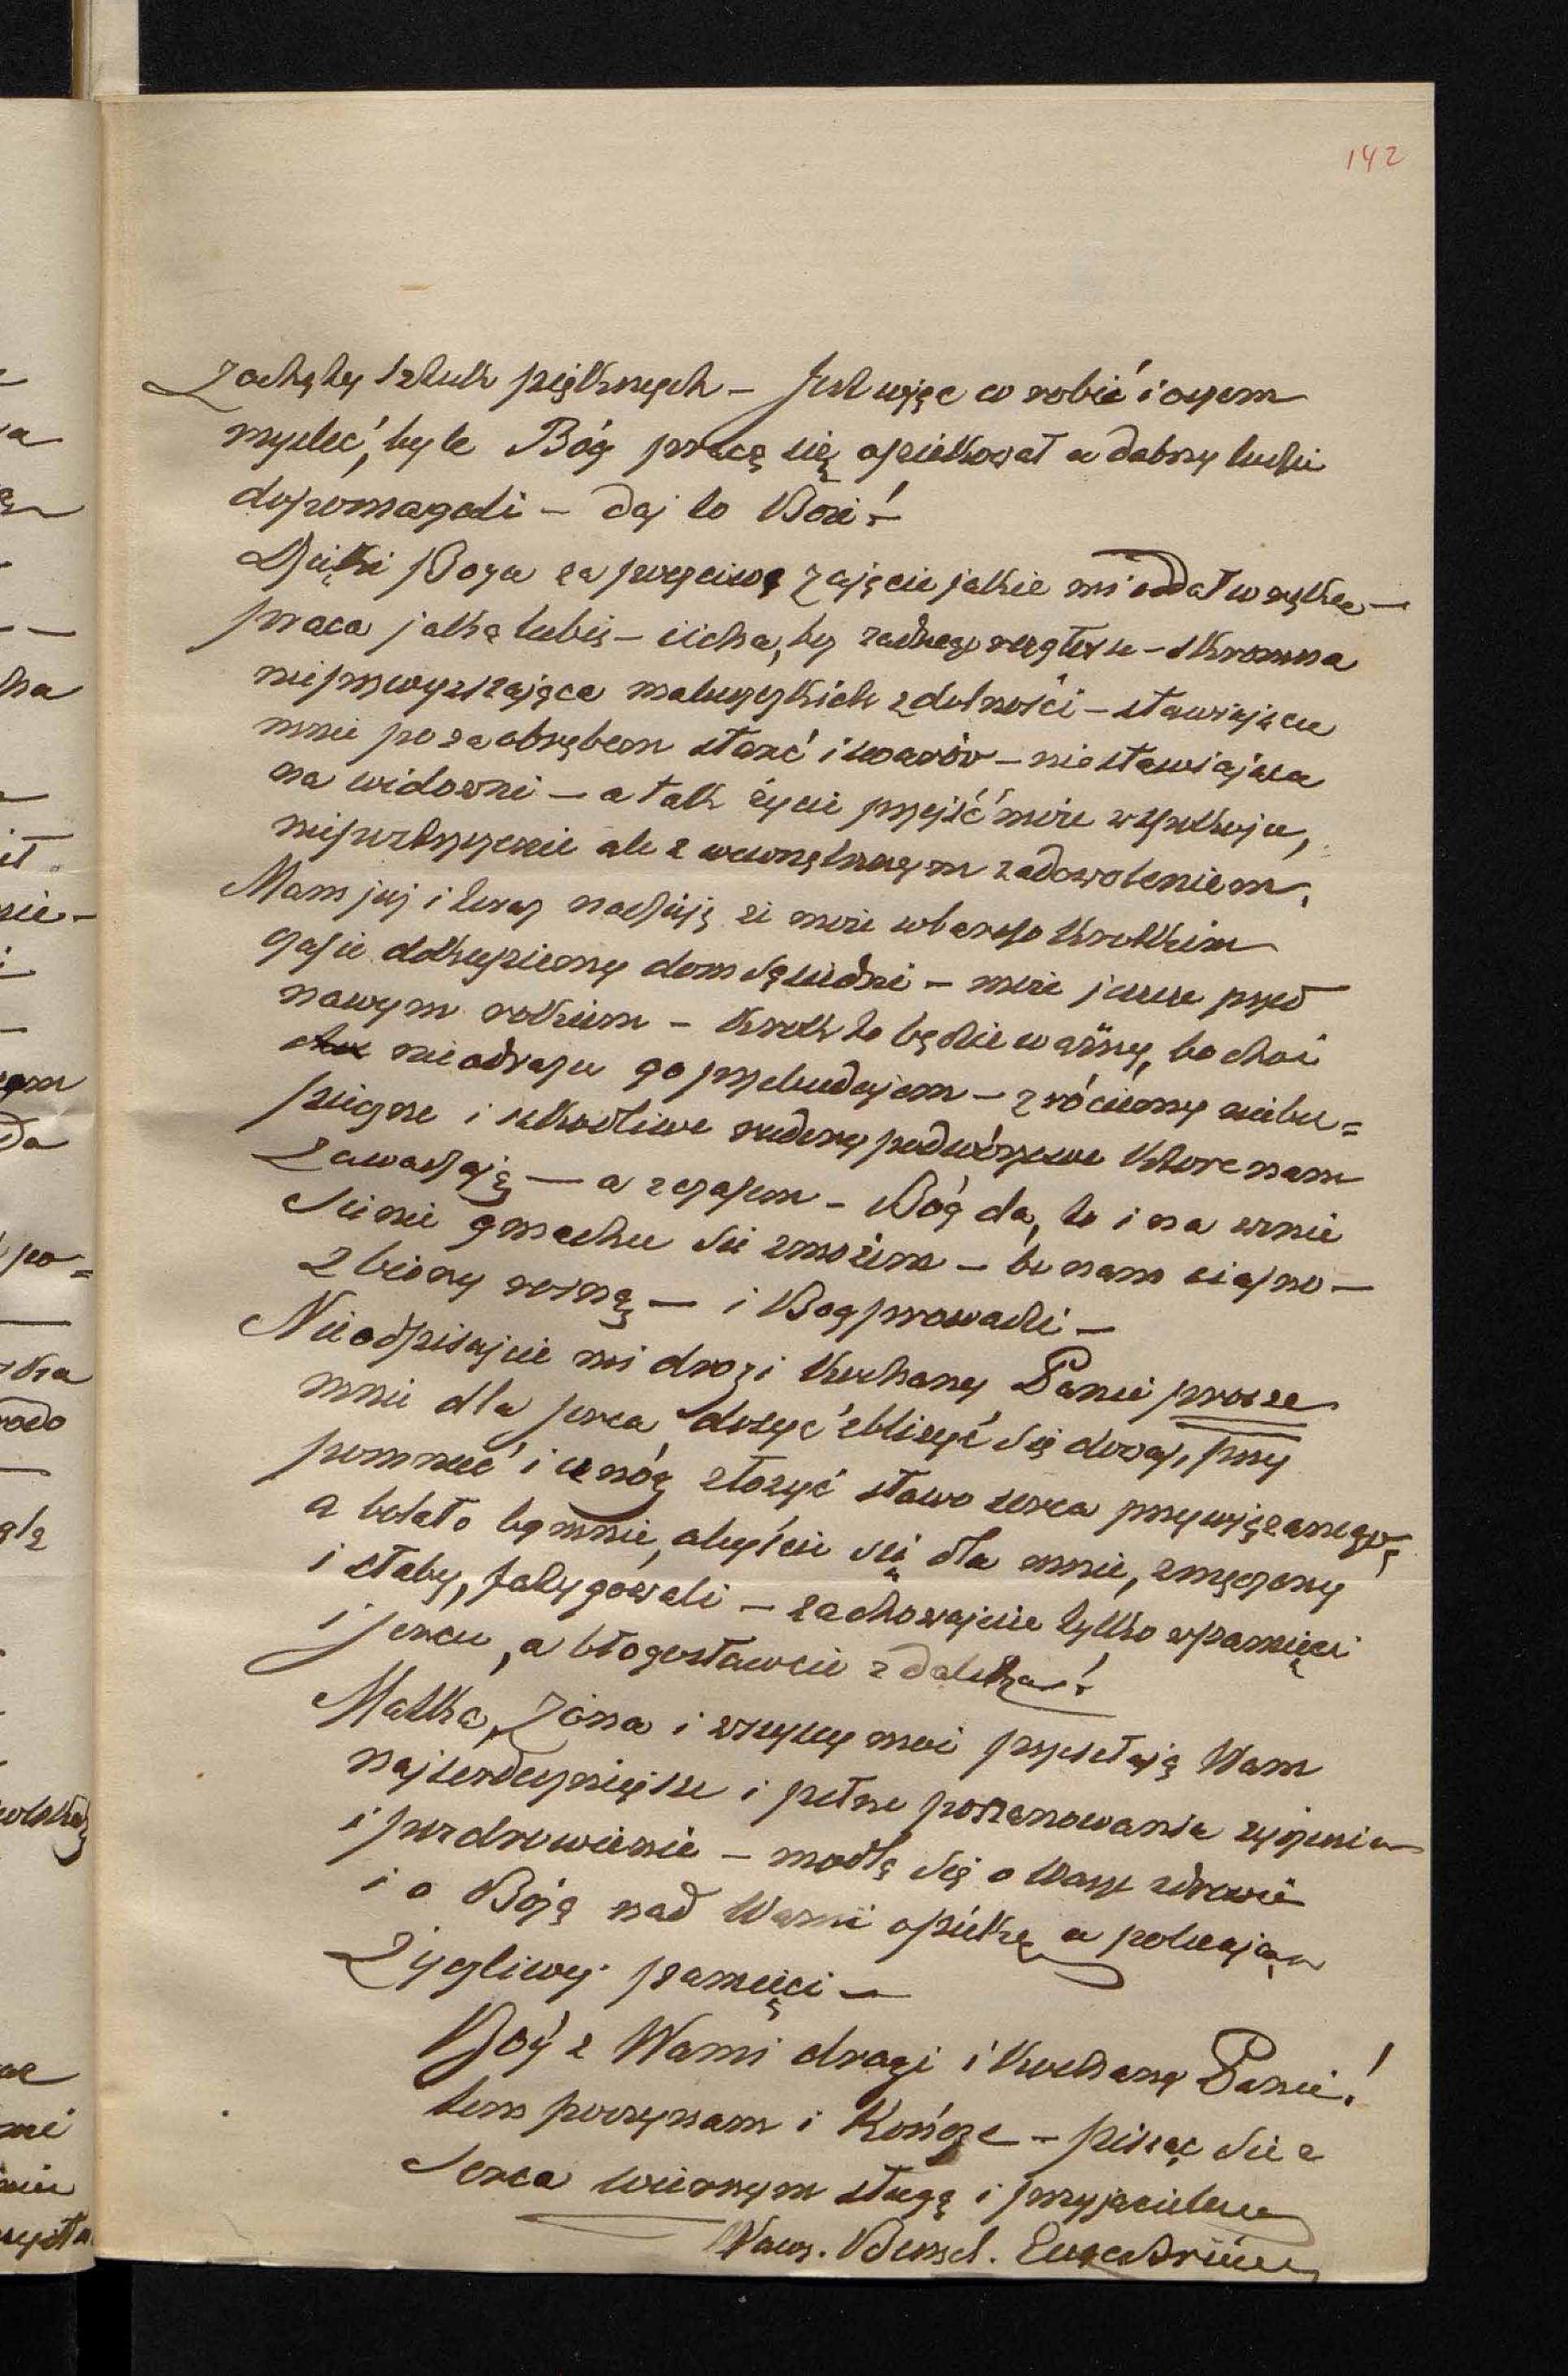 142
Zachęty Sztuk pięknych – Jest więc co robić i o czem
myśleć, byle Bóg pracą się opiekował a dobrzy ludzie
dopomagali – daj to Boże!
Dzięki Boga za poczciwe zajęcie jakie mi oddał w rękę –
praca jaką lubię – cicha, bez żadnego rozgłosu – skromna
nieprzewyższająca maluczkich zdolności – stawiająca
mnie poza obrębem starć i swarów – nie stawiająca
na widowni – a tak życie przejść może w spokoju,
niepozbyteczne ale z wewnętrznym zadowoleniem.
Mam już i teraz nadzieję że może w bardzo krótkim
czasie dokupiemy dom sąsiedni – może jeszcze przed
nowym rokiem – krok to będzie ważny, bo choć
nie odrazu go przebudujem – zrócimy niebez=
pieczne i szkodliwe rudery podwórzowe które nam
zawadzają – a z czasem – Bóg da, to i na wznie
sienie gmachu się zmożem – bo nam ciasno –
Zbiory rosną – i Bóg prowadzi –
Nie odpisujcie mi drogi kochany Panie proszę
mnie dla serca dosyć zbliżyć się doraz, przy
pomnieć i u nóg złożyć słowo serca przywiązanego,
a bolało by mnie, abyście się dla mnie, zmęczony
i słaby, fatygowali – zachowajcie tylko w pamięci
i sercu, a błogosławcie zdaleka!
Matka, Żona i wszyscy moi przesyłają Wam
najserdeczniejsze i pełne poszanowania życzenia
i pozdrowienie – modlą się o Wasze zdrowie
i o Bożą nad Wami opiekę a polecając
życzliwej pamięci –
Bóg z Wami drogi i kochany Panie!
tem poczynam i kończę – pisząc się z
serca wiernym sługą i przyjacielem